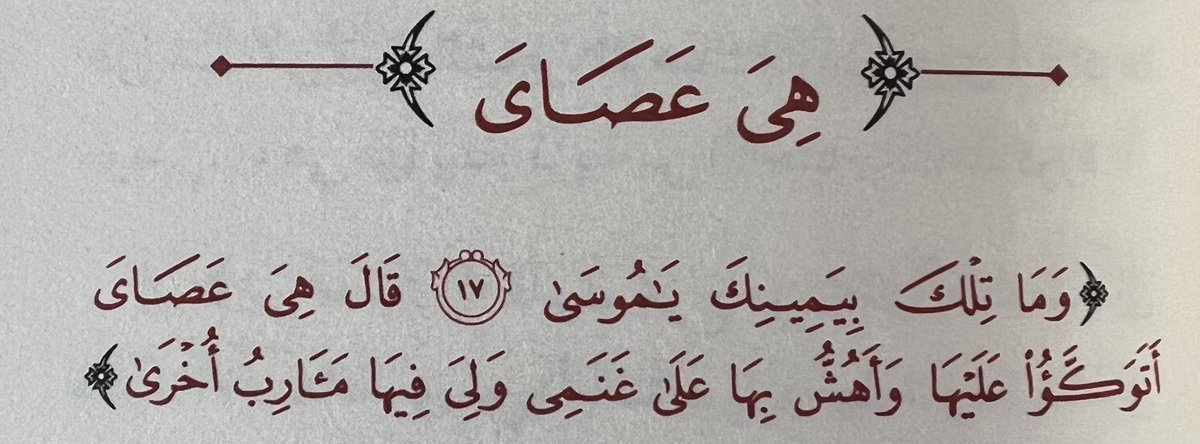 هِىَ عَصَاىَ
﴿وَمَا تِلْكَ بِيَمِينِكَ يَـٰمُوسَىٰ ١٧ قَالَ هِىَ عَصَاىَ
أَتَوَكَّؤُا۟ عَلَيْهَا وَأَهُشُّ بِهَا عَلَىٰ غَنَمِى وَلِىَ فِيهَا مَـَٔارِبُ أُخْرَىٰ﴾